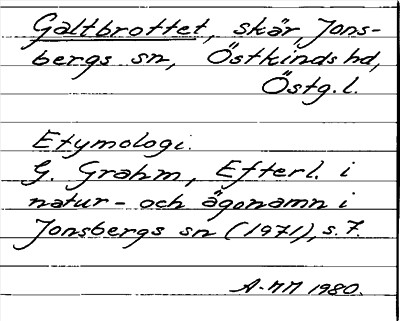 Galtbrottet, skär, Jons-
bergs sn, Östkinds hd,
Östg. l.
Etymologi.
G. Grahm, Efterl. i
natur- och ägonamn i
Jonsbergs sn (1971), s. 7.
A-MM 1980.